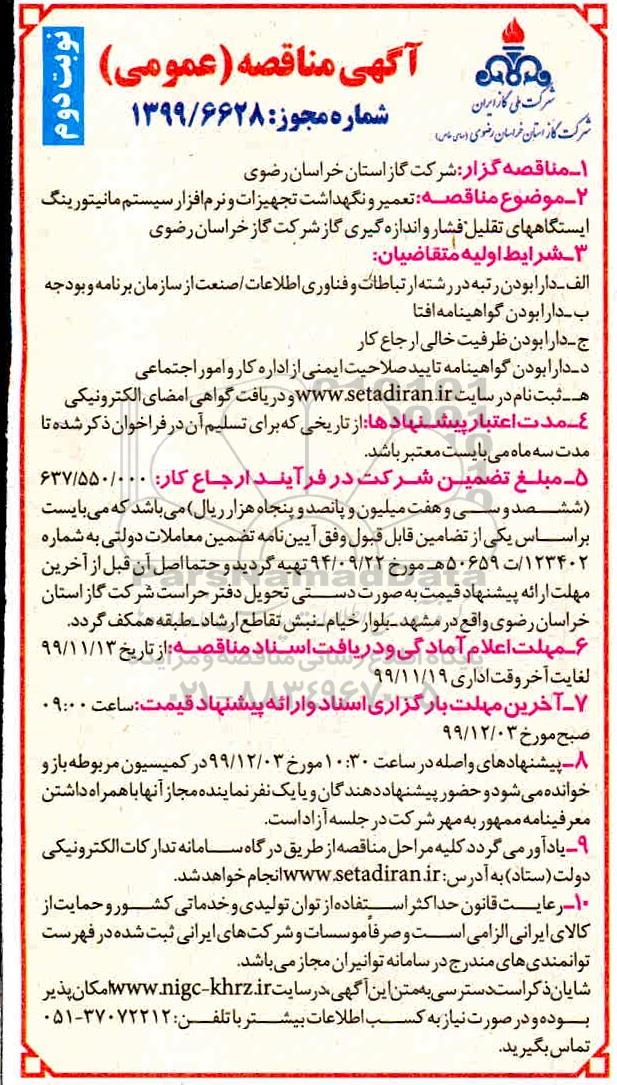 نوبت دوم
آگهی مناقصه (عمومی)
شماره مجوز: ۱۳۹۹/۶۶۲۸
شرکت ملی گاز ایران
شرکت گاز استان خراسان رضوی (سهامی خاص)
۱ـ مناقصه گزار: شرکت گاز استان خراسان رضوی
۲ـ موضوع مناقصه: تعمیر و نگهداشت تجهیزات و نرم افزار سیستم مانیتورینگ
ایستگاههای تقلیل فشار و اندازه گیری گاز شرکت گاز خراسان رضوی
۳ـ شرایط اولیه متقاضیان:
الف ـ دارا بودن رتبه در رشته ارتباطات و فناوری اطلاعات/صنعت از سازمان برنامه و بودجه
ب ـ دارا بودن گواهینامه افتا
ج ـ دارا بودن ظرفیت خالی ارجاع کار
د ـ دارا بودن گواهینامه تایید صلاحیت ایمنی از اداره کار و امور اجتماعی
هـ ـ ثبت نام در سایت www.setadiran.ir و دریافت گواهی امضای الکترونیکی
۴ـ مدت اعتبار پیشنهادها: از تاریخی که برای تسلیم آن در فراخوان ذکر شده تا
مدت سه ماه می بایست معتبر باشد.
۵ـ مبلغ تضمین شرکت در فرآیند ارجاع کار: ۶۳۷/۵۵۰/۰۰۰
(ششصد و سی و هفت میلیون و پانصد و پنجاه هزار ریال) می باشد که می بایست
براساس یکی از تضامین قابل قبول وفق آیین نامه تضمین معاملات دولتی به شماره
۱۲۳۴۰۲/ت ۵۰۶۵۹هـ مورخ ۹۴/۰۹/۲۲ تهیه گردید و حتما اصل آن قبل از آخرین
مهلت ارائه پیشنهاد قیمت به صورت دستی تحویل دفتر حراست شرکت گاز استان
خراسان رضوی واقع در مشهد ـ بلوار خیام ـ نبش تقاطع ارشاد ـ طبقه همکف گردد.
۶ـ مهلت اعلام آمادگی و دریافت اسناد مناقصه: از تاریخ ۹۹/۱۱/۱۳
لغایت آخر وقت اداری ۹۹/۱۱/۱۹
۷ـ آخرین مهلت بارگزاری اسناد و ارائه پیشنهاد قیمت: ساعت ۰۹:۰۰
صبح مورخ ۹۹/۱۲/۰۳
۸ـ پیشنهادهای واصله در ساعت ۱۰:۳۰ مورخ ۹۹/۱۲/۰۳ در کمیسیون مربوطه باز و
خوانده می شود و حضور پیشنهاددهندگان و یا یک نفر نماینده مجاز آنها با همراه داشتن
معرفینامه ممهور به مهر شرکت در جلسه آزاد است.
۹ـ یادآور می گردد کلیه مراحل مناقصه از طریق درگاه سامانه تدارکات الکترونیکی
دولت (ستاد) به آدرس: www.setadiran.ir انجام خواهد شد.
۱۰ـ رعایت قانون حداکثر استفاده از توان تولیدی و خدماتی کشور و حمایت از
کالای ایرانی الزامی است و صرفاً موسسات و شرکت های ایرانی ثبت شده در فهرست
توانمندی های مندرج در سامانه توانیران مجاز می باشد.
شایان ذکر است دسترسی به متن این آگهی، در سایت www.nigc-khrz.ir امکان پذیر
بوده و در صورت نیاز به کسب اطلاعات بیشتر با تلفن: ۳۷۰۷۲۲۱۲-۰۵۱
تماس بگیرید.
ParsNamadData
پایگاه اطلاع رسانی مناقصه و مزایده
۰۲۱-۸۸۳۴۹۶۷۰-۵